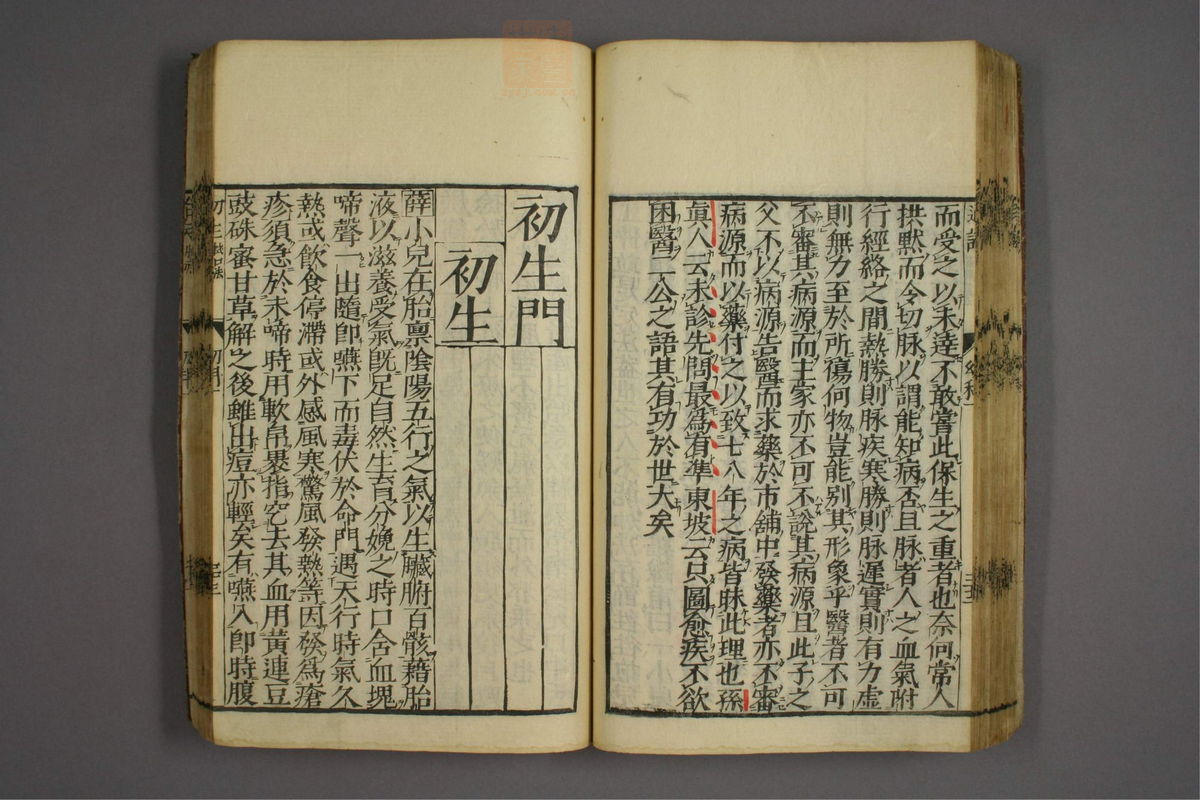 而受之以未達不敢嘗此保生之重者也奈何常人
拱默而令切脉以謂能知病否且脉者人之血氣附
行經絡之間熱勝則脉疾寒勝則脉遲實則有力虚
則無力至於所傷何物豈能别其形象乎醫者不可
不審其病源而主家亦不可不說其病源且此子之
父不以病源告醫而求藥於市舖中發藥者亦不審
病源而以藥付之以致七八年之病皆昧此理也孫
眞人云未診先問最爲有準東坡云只圖愈疾不欲
困醫二公之語其有功於世大矣
初生門
初生
薛小兒在胎禀陰陽五行之氣以生臟腑百骸藉胎
液以滋養受氣旣足自然生育分娩之時口含血塊
啼聲一出隨卽嚥下而毒伏於命門遇天行時氣久
熱或飲食停滯或外感風寒驚風發熱等因發爲瘡
疹須急於未啼時用軟帛裹指挖去其血用黄連豆
豉硃蜜甘草解之後雖出痘亦輕矣有嚥入卽時腹